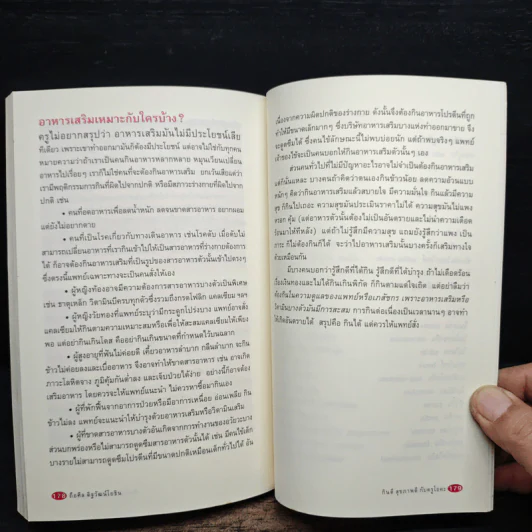 อาหารเสริมเหมาะกับใครบ้าง?
ครูไม่อยากสรุปว่า อาหารเสริมมันไม่มีประโยชน์เสีย
ทีเดียว เพราะเขาทำออกมามันก็ต้องมีประโยชน์ แต่อาจไม่ใช่กับทุกคน
หมายความว่าถ้าเราเป็นคนกินอาหารหลากหลาย หมุนเวียนเปลี่ยน
อาหารไปเรื่อยๆ เราก็ไม่ใช่คนที่จะต้องกินอาหารเสริม ยกเว้นเสียแต่ว่า
เรามีพฤติกรรมการกินที่ผิดไปจากปกติ หรือมีสภาวะร่างกายที่ผิดไปจาก
ปกติ เช่น
• คนที่อดอาหารเพื่อลดน้ำหนัก ลดจนขาดสารอาหาร อยากผอม
แต่ยังไม่อยากตาย
• คนที่เป็นโรคเกี่ยวกับทางเดินอาหาร เช่นโรคตับ เมื่อตับไม่
สามารถเปลี่ยนอาหารที่เรากินเข้าไปให้เป็นสารอาหารที่ร่างกายต้องการ
ได้ ก็อาจต้องกินอาหารเสริมที่เป็นรูปของสารอาหารตัวนั้นเข้าไปตรงๆ
ซึ่งตรงนี้แพทย์เฉพาะทางจะเป็นคนสั่งให้เอง
• ผู้หญิงท้องอาจมีความต้องการสารอาหารบางตัวเป็นพิเศษ
เช่น ธาตุเหล็ก วิตามินบีครบทุกตัวซึ่งรวมถึงกรดโฟลิก แคลเซียม ฯลฯ
• ผู้หญิงวัยทองที่แพทย์ระบุว่ามีกระดูกโปร่งบาง แพทย์จะสั่ง
แคลเซียมให้กินตามความเหมาะสมหรือเพื่อให้สะสมแคลเซียมให้เพียง
พอ แต่อย่ากินเกินโดส คืออย่ากินเกินขนาดที่กำหนดไว้บนฉลาก
• ผู้สูงอายุที่ฟันไม่ค่อยดี เคี้ยวอาหารลำบาก กลืนลำบาก จะกิน
ข้าวไม่ค่อยลงและเบื่ออาหาร จึงอาจทำให้ขาดสารอาหาร เช่น อาจเกิด
ภาวะโลหิตจาง ภูมิคุ้มกันต่ำลง และเจ็บป่วยได้ง่าย อย่างนี้ก็อาจต้อง
เสริมอาหาร โดยควรจะให้แพทย์แนะนำ ไม่ควรหาซื้อมากินเอง
• ผู้ที่พักฟื้นจากอาการป่วยหรือมีอาการเหนื่อย อ่อนเพลีย กิน
ข้าวไม่ลง แพทย์จะแนะนำให้บำรุงด้วยอาหารเสริมหรือวิตามินเสริม
• ผู้ที่ขาดสารอาหารบางตัวอันเกิดจากการทำงานของอวัยวะบาง
ส่วนบกพร่องหรือไม่สามารถดูดซึมสารอาหารตัวนั้นได้ เช่น มีคนไข้เด็ก
บางรายไม่สามารถดูดซึมโปรตีนที่มีขนาดปกติเหมือนเด็กทั่วไปได้ อัน
178
เนื่องจากความผิดปกติของร่างกาย ดังนั้นจึงต้องกินอาหารโปรตีนที่ถูก
ทำให้มีขนาดเล็กมากๆ ซึ่งบริษัทอาหารเสริมบางแห่งทำออกมาขาย จึง
จะดูดซึมได้ ซึ่งคนไข้ลักษณะนี้ไม่พบบ่อยนัก แต่ถ้าพบจริงๆ แพทย์
เจ้าของไข้จะเป็นคนบอกให้กินอาหารเสริมตัวนั้นๆ เอง
ส่วนคนทั่วไปที่ไม่มีปัญหาอะไรอาจไม่จำเป็นต้องกินอาหารเสริม
แต่ก็นั่นแหละ บางคนถ้าคิดว่าตนเองกินข้าวน้อย ลดความอ้วนแบบ
หนักๆ คิดว่ากินอาหารเสริมแล้วสบายใจ มีความมั่นใจ กินแล้วมีความ
สุข ก็กินไปเถอะ ความสุขมันประเมินราคาไม่ได้ ความสุขมันไม่แพง
หรอก คุ้ม (แต่อาหารตัวนั้นต้องไม่เป็นอันตรายและไม่นำความเดือด
ร้อนมาให้ทีหลัง) แต่ถ้าไม่รู้สึกมีความสุข แถมยังรู้สึกว่าแพง เป็น
ภาระ ก็ไม่ต้องกินก็ได้ จะว่าไปอาหารเสริมนั้นบางครั้งก็เสริมทางใจ
ด้วยเหมือนกัน
มีบางคนบอกว่ารู้สึกดีที่ได้กิน รู้สึกดีที่ได้บำรุง ถ้าไม่เดือดร้อน
เรื่องเงินทองและไม่ได้กินเกินพิกัด ก็กินตามแต่ใจเถิด แต่อย่าลืมว่า
ต้องกินในความดูแลของแพทย์หรือเภสัชกร เพราะอาหารเสริมหรือ
วิตามินบางตัวมันมีการสะสม การกินต่อเนื่องเป็นเวลานานๆ อาจทำ
ให้เกิดอันตรายได้ สรุปคือ กินได้ แต่ควรให้แพทย์สั่ง
กินดี สุขภาพดี กับครูโอ๋คะ 179